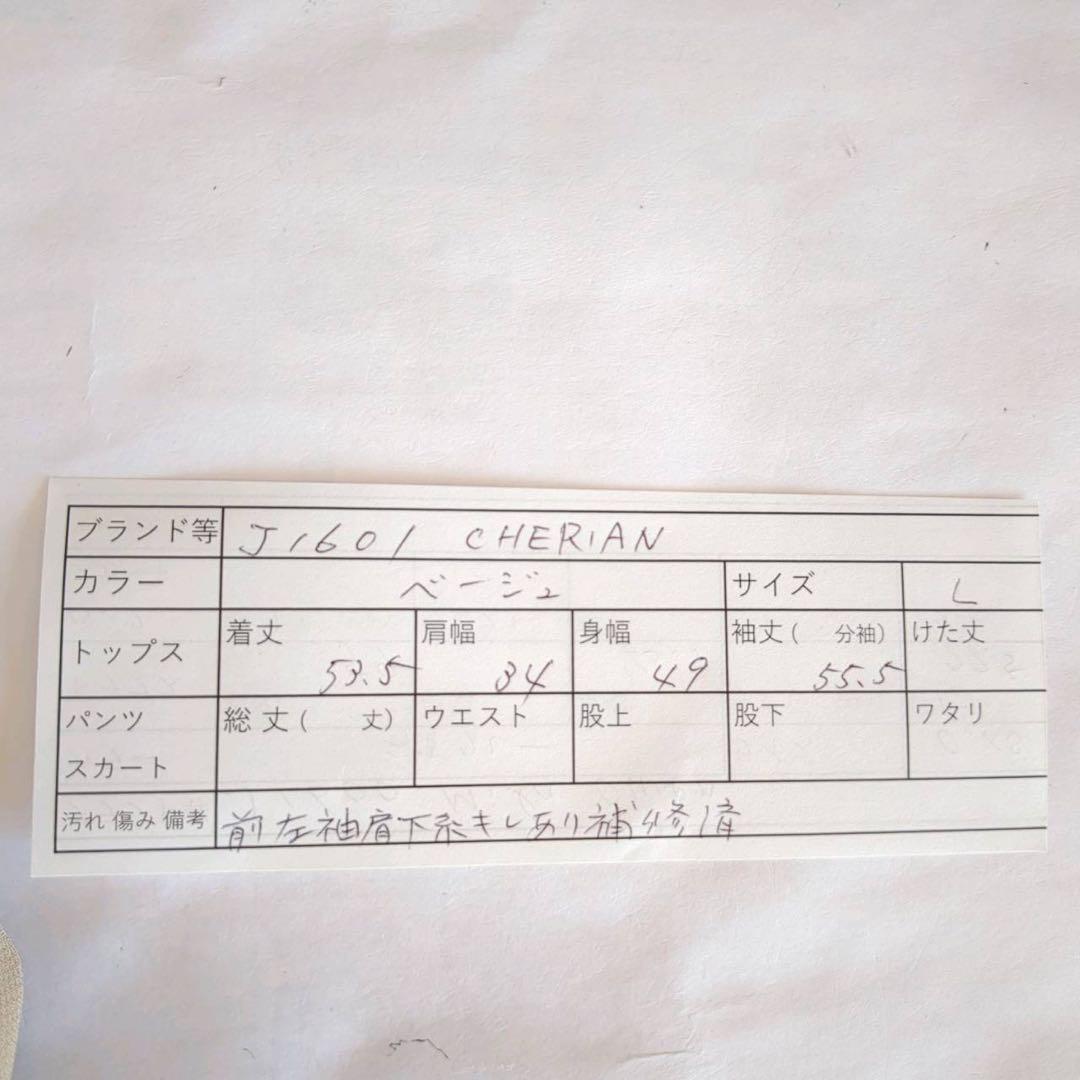 ブランド等 J1601 CHERIAN
カラー ベージュ サイズ L
トップス 着丈 53.5 肩幅 34 身幅 49 袖丈( 分袖) 55.5 けた丈
パンツ 総丈( 丈) ウエスト 股上 股下 ワタリ
スカート
汚れ 傷み 備考 前左袖肩下糸キレあり補修済